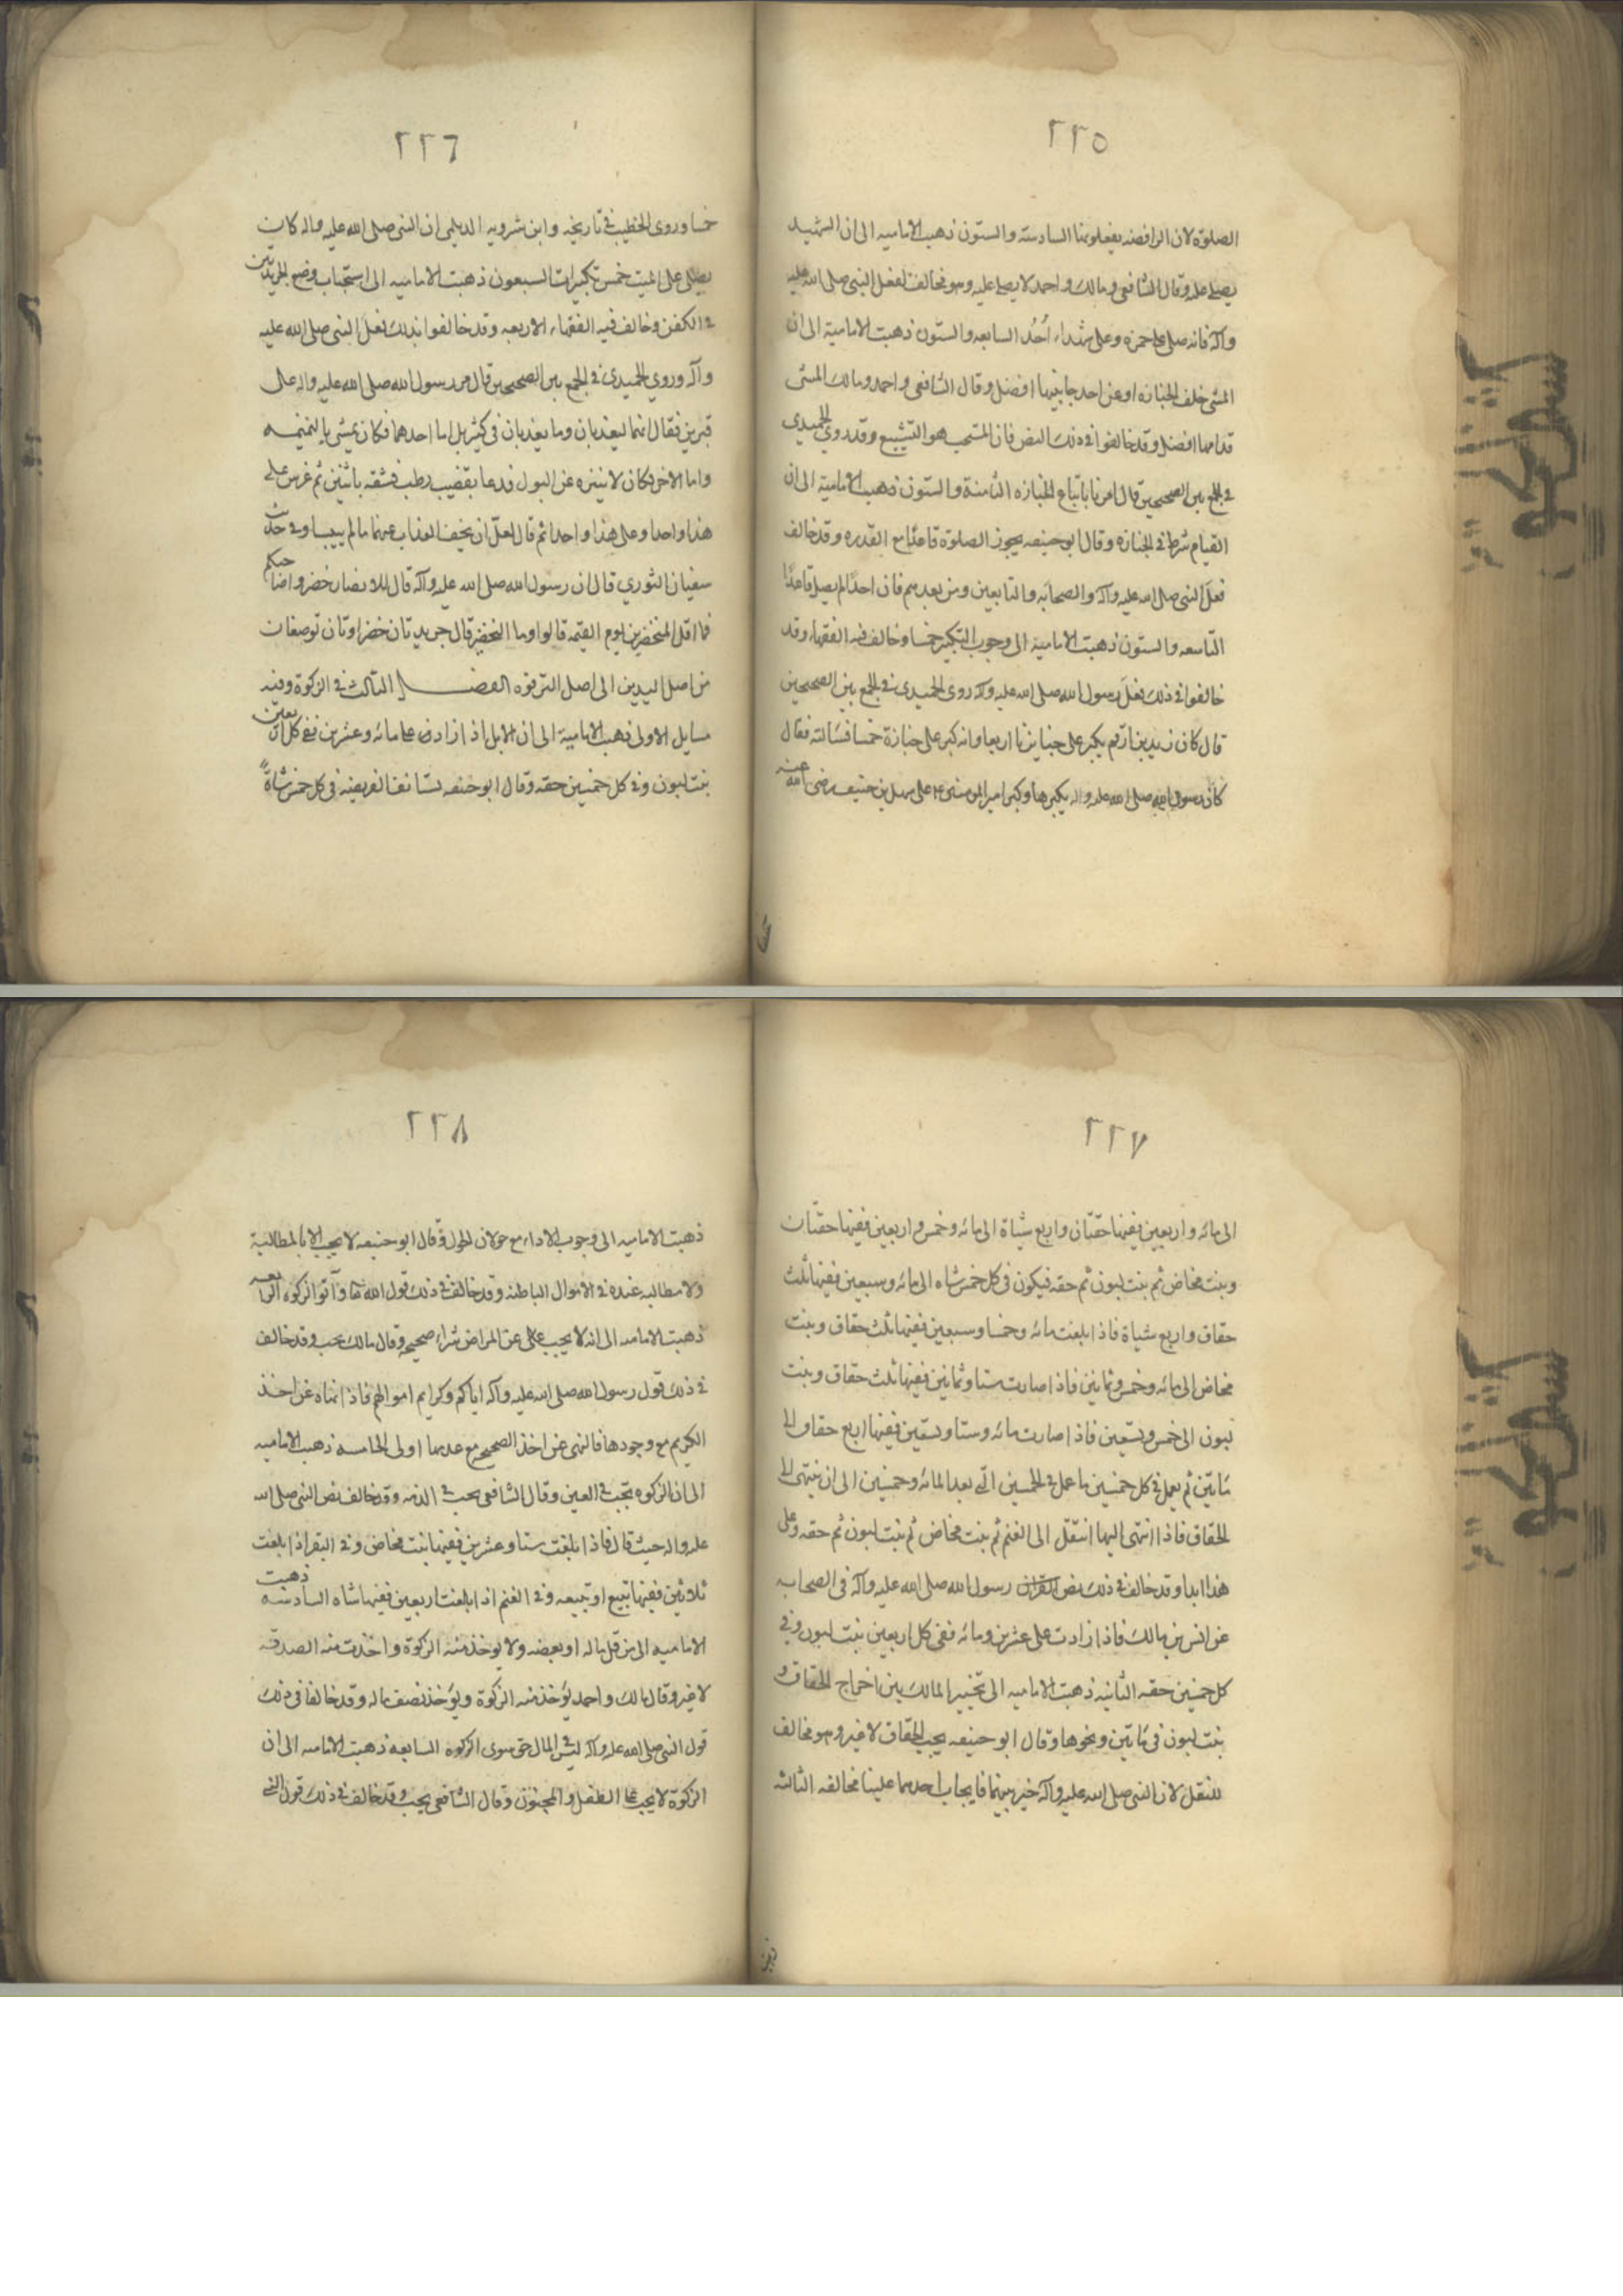 ٢٢٥
الصلوة لان الرافضه يفعلونها السادسة والستون ذهبت الامامية الى ان الشهيد
يصلى عليه وقال الشافعى ومالك واحمد لا يصلى عليه وهو مخالف لفعل النبى صلى الله عليه
وآله فانه صلى على حمزه وعلى شهداء اُحُد السابعه والستون ذهبت الامامية الى ان
المشى خلف الجنازه او عن احد جانبيها افضل وقال الشافعى واحمد ومالك المشى
قدامها افضل وقد خالفوا فى ذلك النص فان المستحب هو التشييع وقد روى الحميدى
فى الجمع بين الصحيحين قال امرنا باتباع الجنازه الثامنة والستون ذهبت الامامية الى ان
القيام شرط فى الجنازه وقال ابو حنيفه يجوز الصلوة قاعدًا مع القدره وقد خالف
فعل النبى صلى الله عليه وآله والصحابه والتابعين ومن بعدهم فان احدًا لم يصل قاعدًا
التاسعه والستون ذهبت الامامية الى وجوب التكبير خمسا وخالف فيه الفقهاء وقد
خالفوا فى ذلك فعل رسول الله صلى الله عليه وآله روى الحميدى فى الجمع بين الصحيحين
قال كان زيد بن ارقم يكبر على جنايزنا اربعا وانه كبر على جنازة خمسا فسالته فقال
كان رسول الله صلى الله عليه واله يكبرها وكبر امير المومنين ع على سهل بن حنيف رضى الله عنه
٢٢٦
خمسا وروى الخطيب فى تاريخه وابن شرويه الديلمى ان النبى صلى الله عليه واله كان
يصلى على الميت خمس تكبيرات السبعون ذهبت الامامية الى استحباب وضع الجريدتين
فى الكفن وخالف فيه الفقهاء الاربعه وقد خالفوا بذلك فعل النبى صلى الله عليه
وآله وروى الحميدى فى الجمع بين الصحيحين قال مر رسول الله صلى الله عليه واله على
قبرين فقال انهما ليعذبان وما يعذبان فى كثير بل اما احدهما فكان يمشى بالنميمه
واما الاخر فكان لا يتنزه عن البول فدعا بقضيب رطب فشقه باثنين ثم غرس على
هذا واحدا وعلى هذا واحدا ثم قال لعلّ ان يخفف العذاب عنهما ما لم ييبسا وفى حديث
سفيان الثورى قال ان رسول الله صلى الله عليه وآله قال للانصار خضروا صاحبكم
فما اقل المتخضرين يوم القيمة قالوا وما التخضير قال جريدتان خضراوتان توضعان
من اصل اليدين الى اصل الترقوه الفصل الثالث فى الزكوة وفيه
مسايل الاولى ذهبت الامامية الى ان الابل اذا زادت على مائه وعشرين ففى كل اربعين
بنت لبون وفى كل خمسين حقه وقال ابو حنيفه تستانف الفريضه فى كل خمس شاةً
٢٢٧
الى مائه واربعين ففيها حقتان واربع شياة الى مائه وخمس واربعين ففيها حقتان
وبنت مخاض ثم بنت لبون ثم حقه فيكون فى كل خمس شاه الى مائه وسبعين ففيها ثلث
حقاق واربع شياة فاذا بلغت مائه وخمسا وسبعين ففيها ثلث حقاق وبنت
مخاض الى مائه وخمس وثمانين فاذا صارت ستا وثمانين ففيها ثلث حقاق وبنت
لبون الى خمس وتسعين فاذا صارت مائه وستا وتسعين ففيها اربع حقاق الى
مَاتين ثم يعمل فى كل خمسين ما عمل فى الخمسين الّتى بعد المائه وخمسين الى ان ينتهى الى
الحقاق فاذا انتهى اليها انتقل الى الغنم ثم بنت مخاض ثم بنت لبون ثم حقه وعلى
هذا ابدا وقد خالف فى ذلك نص القران رسول الله صلى الله عليه وآله فى الصحابه
عن انس بن مالك فاذا زادت على عشرين ومائه ففى كل اربعين بنت لبون وفى
كل خمسين حقه الثانيه ذهبت الاماميه الى تخيير المالك بين اخراج الحقاق و
بنت لبون فى مَاتين ونحوها وقال ابو حنيفه يجب الحقاق لا غير وهو مخالف
للنقل لان النبى صلى الله عليه وآله خير بينهما فايجاب احدهما علينا مخالفه الثالثه
٢٢٨
ذهبت الاماميه الى وجوب الاداء مع حولان الحول وقال ابو حنيفه لا يجب الا بالمطالبة
ولا مطالبه عنده فى الاموال الباطنة وقد خالف فى ذلك قول الله تعا وآتوا الزكوه الرابعه
ذهبت الامامه الى انه لا يجب على عن المراض شراء صحيحه وقال مالك يجب وقد خالف
فى ذلك قول رسول الله صلى الله عليه وآله اياكم وكرايم اموالهم فاذا نهاه عن اخذ
الكريم مع وجودها فالنهى عن اخذ الصحيح مع عدمها اولى الخامسه ذهبت الاماميه
الى ان الزكوه تجب فى العين وقال الشافعى يجب فى الذمه وقد خالف نص النبى صلى الله
عليه واله حيث قال فاذا بلغت ستا وعشرين ففيها بنت مخاض وفى البقر اذا بلغت
ثلاثين ففيها تبيع او تبيعه وفى الغنم اذا بلغت اربعين ففيها شاه السادسه ذهبت
الاماميه الى من قل ماله او بعضه ولا يوخذ منه الزكوة واخذت منه الصدقه
لا غير وقال مالك واحمد يؤخذ منه الزكوة ويؤخذ نصف ماله وقد خالفا فى ذلك
قول النبى صلى الله عليه وآله ليس فى المال حق سوى الزكوه السابعه ذهبت الامامه الى ان
الزكوة لا يجب على الطفل والمجنون وقال الشافعى يجب وقد خالف فى ذلك قول النبى